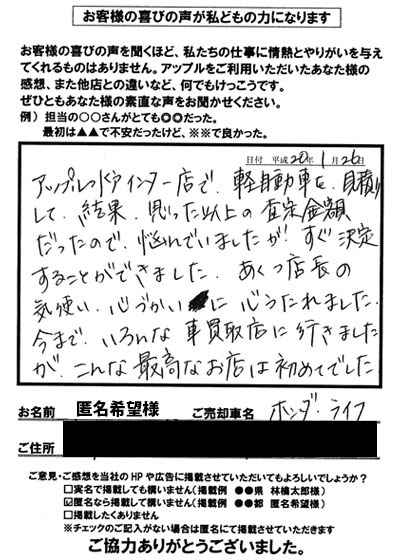 お客様の喜びの声が私どもの力になります
お客様の喜びの声を聞くほど、私たちの仕事に情熱とやりがいを与え
てくれるものはありません。アップルをご利用いただいたあなた様の
感想、また他店との違いなど、何でもけっこうです。
ぜひともあなた様の素直な声をお聞かせください。
例）担当の〇〇さんがとても◎◎だった。
最初は▲▲で不安だったけど、※※で良かった。
日付 平成20年 1月26日
アップル インター店で、軽自動車を、見積り
して、結果、思った以上の査定金額
だったので、悩んでいましたが、すぐ決定
することができました、あくつ店長の
気使い、心づかいに心うたれました。
今まで、いろんな車買取店に行きました
が、こんな最高なお店は初めてでした
お名前 匿名希望様 ご売却車名 ホンダ・ライフ
ご住所
ご意見・ご感想を当社のHPや広告に掲載させていただいてもよろしいでしょうか？
□実名で掲載しても構いません（掲載例 ●●県 林檎太郎様）
☑匿名なら掲載して構いません（掲載例 ●●部 匿名希望様）
□掲載したくありません
※チェックのご記入がない場合は匿名にて掲載させていただきます
ご協力ありがとうございました。